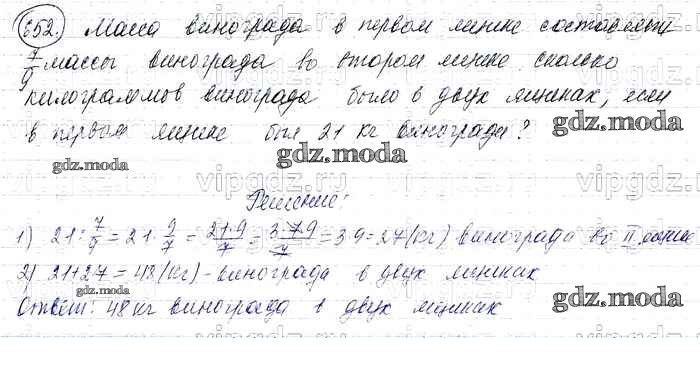 652. Масса винограда в первом ящике составляет
7/9 массы винограда во втором ящике сколько
килограммов винограда было в двух ящиках, если
в первом ящике был 21 кг винограда?
gdz.moda
gdz.moda
gdz.moda
Решение:
1) 21 : 7/9 = 21 · 9/7 = 21·9/7 = 3·7·9/7 = 3·9 = 27 (кг) - винограда во II ящике
2) 21+27 = 48 (кг) - винограда в двух ящиках
Ответ: 48 кг винограда в двух ящиках
gdz.moda
gdz.moda